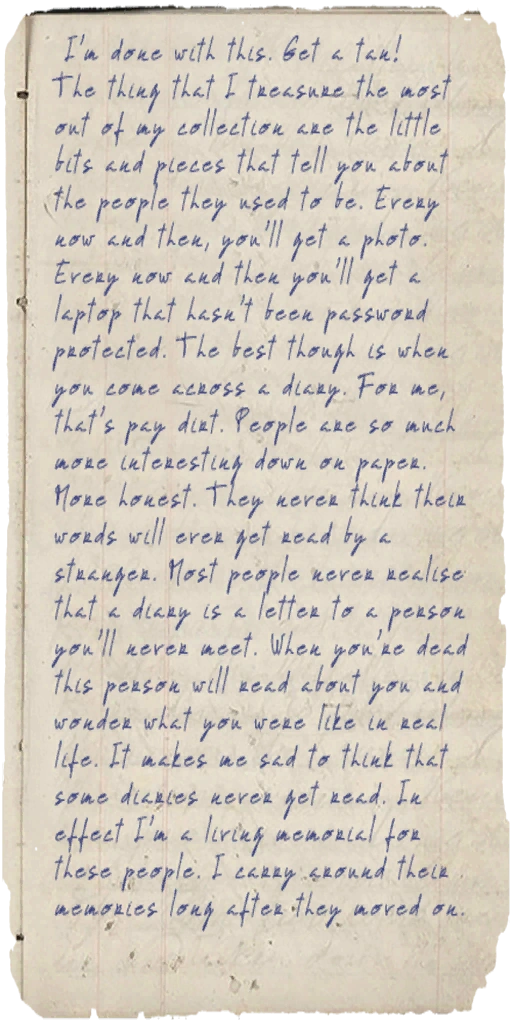 I'm done with this. Get a tan!
The thing that I treasure the most
out of my collection are the little
bits and pieces that tell you about
the people they used to be. Every
now and then, you'll get a photo.
Every now and then you'll get a
laptop that hasn't been password
protected. The best though is when
you come across a diary. For me,
that's pay dirt. People are so much
more interesting down on paper.
More honest. They never think their
words will ever get read by a
stranger. Most people never realise
that a diary is a letter to a person
you'll never meet. When you're dead
this person will read about you and
wonder what you were like in real
life. It makes me sad to think that
some diaries never get read. In
effect I'm a living memorial for
these people. I carry around their
memories long after they moved on.